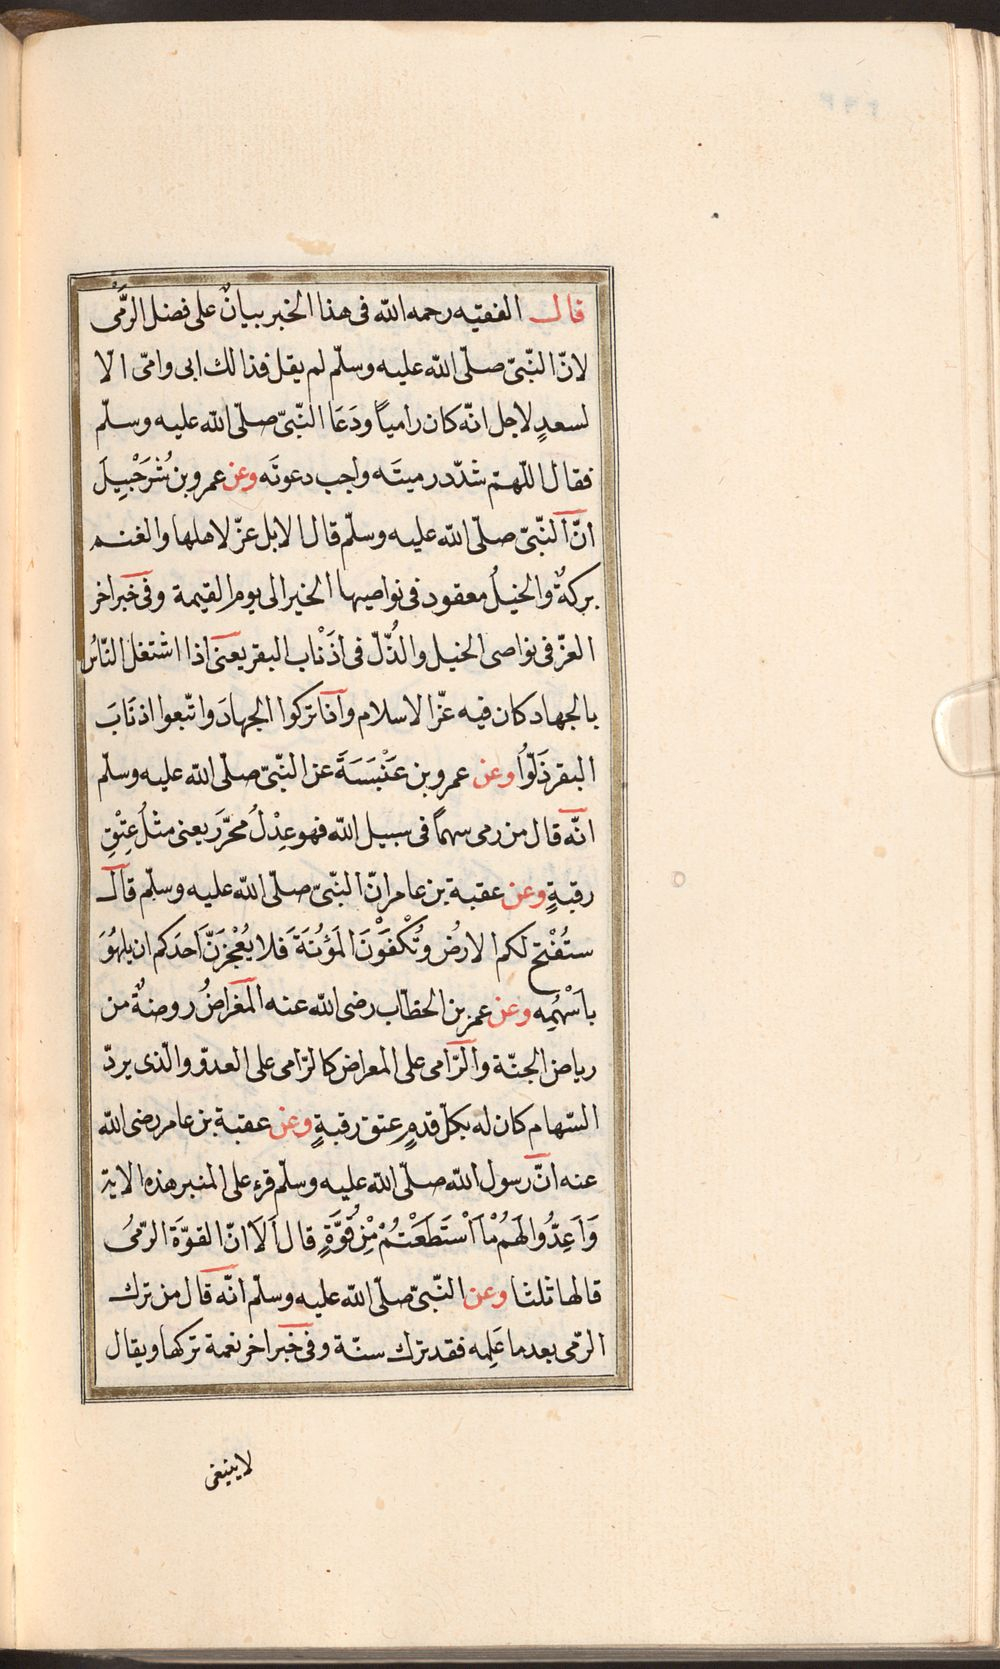 قال الفقيه رحمه الله فى هذا الخبر بيانٌ على فضل الرَّمْى
لانّ النّبىّ صلّى الله عليه وسلّم لم يقل فذا لك ابى وامّى الا
لسعدٍ لاجل انّه كان رامياً ودَعَا النّبىّ صلّى الله عليه وسلّم
فقال اللّهمّ شدّد رميتَه واجب دعوتَه وعن عمرو بن شُرَحْبِيلَ
انّ النّبىّ صلّى الله عليه وسلّم قال الابل عزّ لاهلها والغنم
بركةٌ والخيلُ معقود فى نواصيها الخير الى يوم القيمة وفى خبر اخر
العزّ فى نواصى الخيل والذُّلّ فى اذْنَاب البقر يعنى اذا اشتغل النّاسُ
بالجهاد كان فيه عزّ الاسلام واذا تركوا الجهادَ واتّبعوا اذنَابَ
البقر ذَلّوُا وعن عمرو بن عَنْبَسَةَ عن النّبىّ صلّى الله عليه وسلّم
انّه قال من رمى سهماً فى سبيل الله فهو عِدْلُ محرَّر يعنى مثلُ عِتْقِ
رقبةٍ وعن عقبة بن عامر انّ النّبىّ صلّى الله عليه وسلّم قال
ستُفْتح لكم الارضُ وتُكْفَوْنَ المَؤُنَةَ فلا يُعْجِزَنَّ اَحدَكم ان يلهُوَ
باَسْهُمِه وعن عمر بن الخطّاب رضى الله عنه المغراضُ روضةٌ من
رياض الجنّة والرّامى على المعراض كالرّامى على العدوّ والّذى يردّ
السّهام كان له بكلّ قدمٍ عتق رقبةٍ وعن عقبة بن عامر رضى الله
عنه انّ رسول الله صلّى الله عليه وسلّم قرء على المنبر هذه الاية
وَاَعِدُّوا لَهُمْ مَا اَسْتَطَعْتُمْ مِنْ قُوَّةٍ قال اَلاَ انّ القوّةَ الرّمىُ
قالها ثلثا وعن النّبىّ صلّى الله عليه وسلّم انّه قال من ترك
الرّمى بعد ما عَلِمه فقد ترك سنّة وفى خبر اخر نعمة تركها ويقال
لا ينبغى